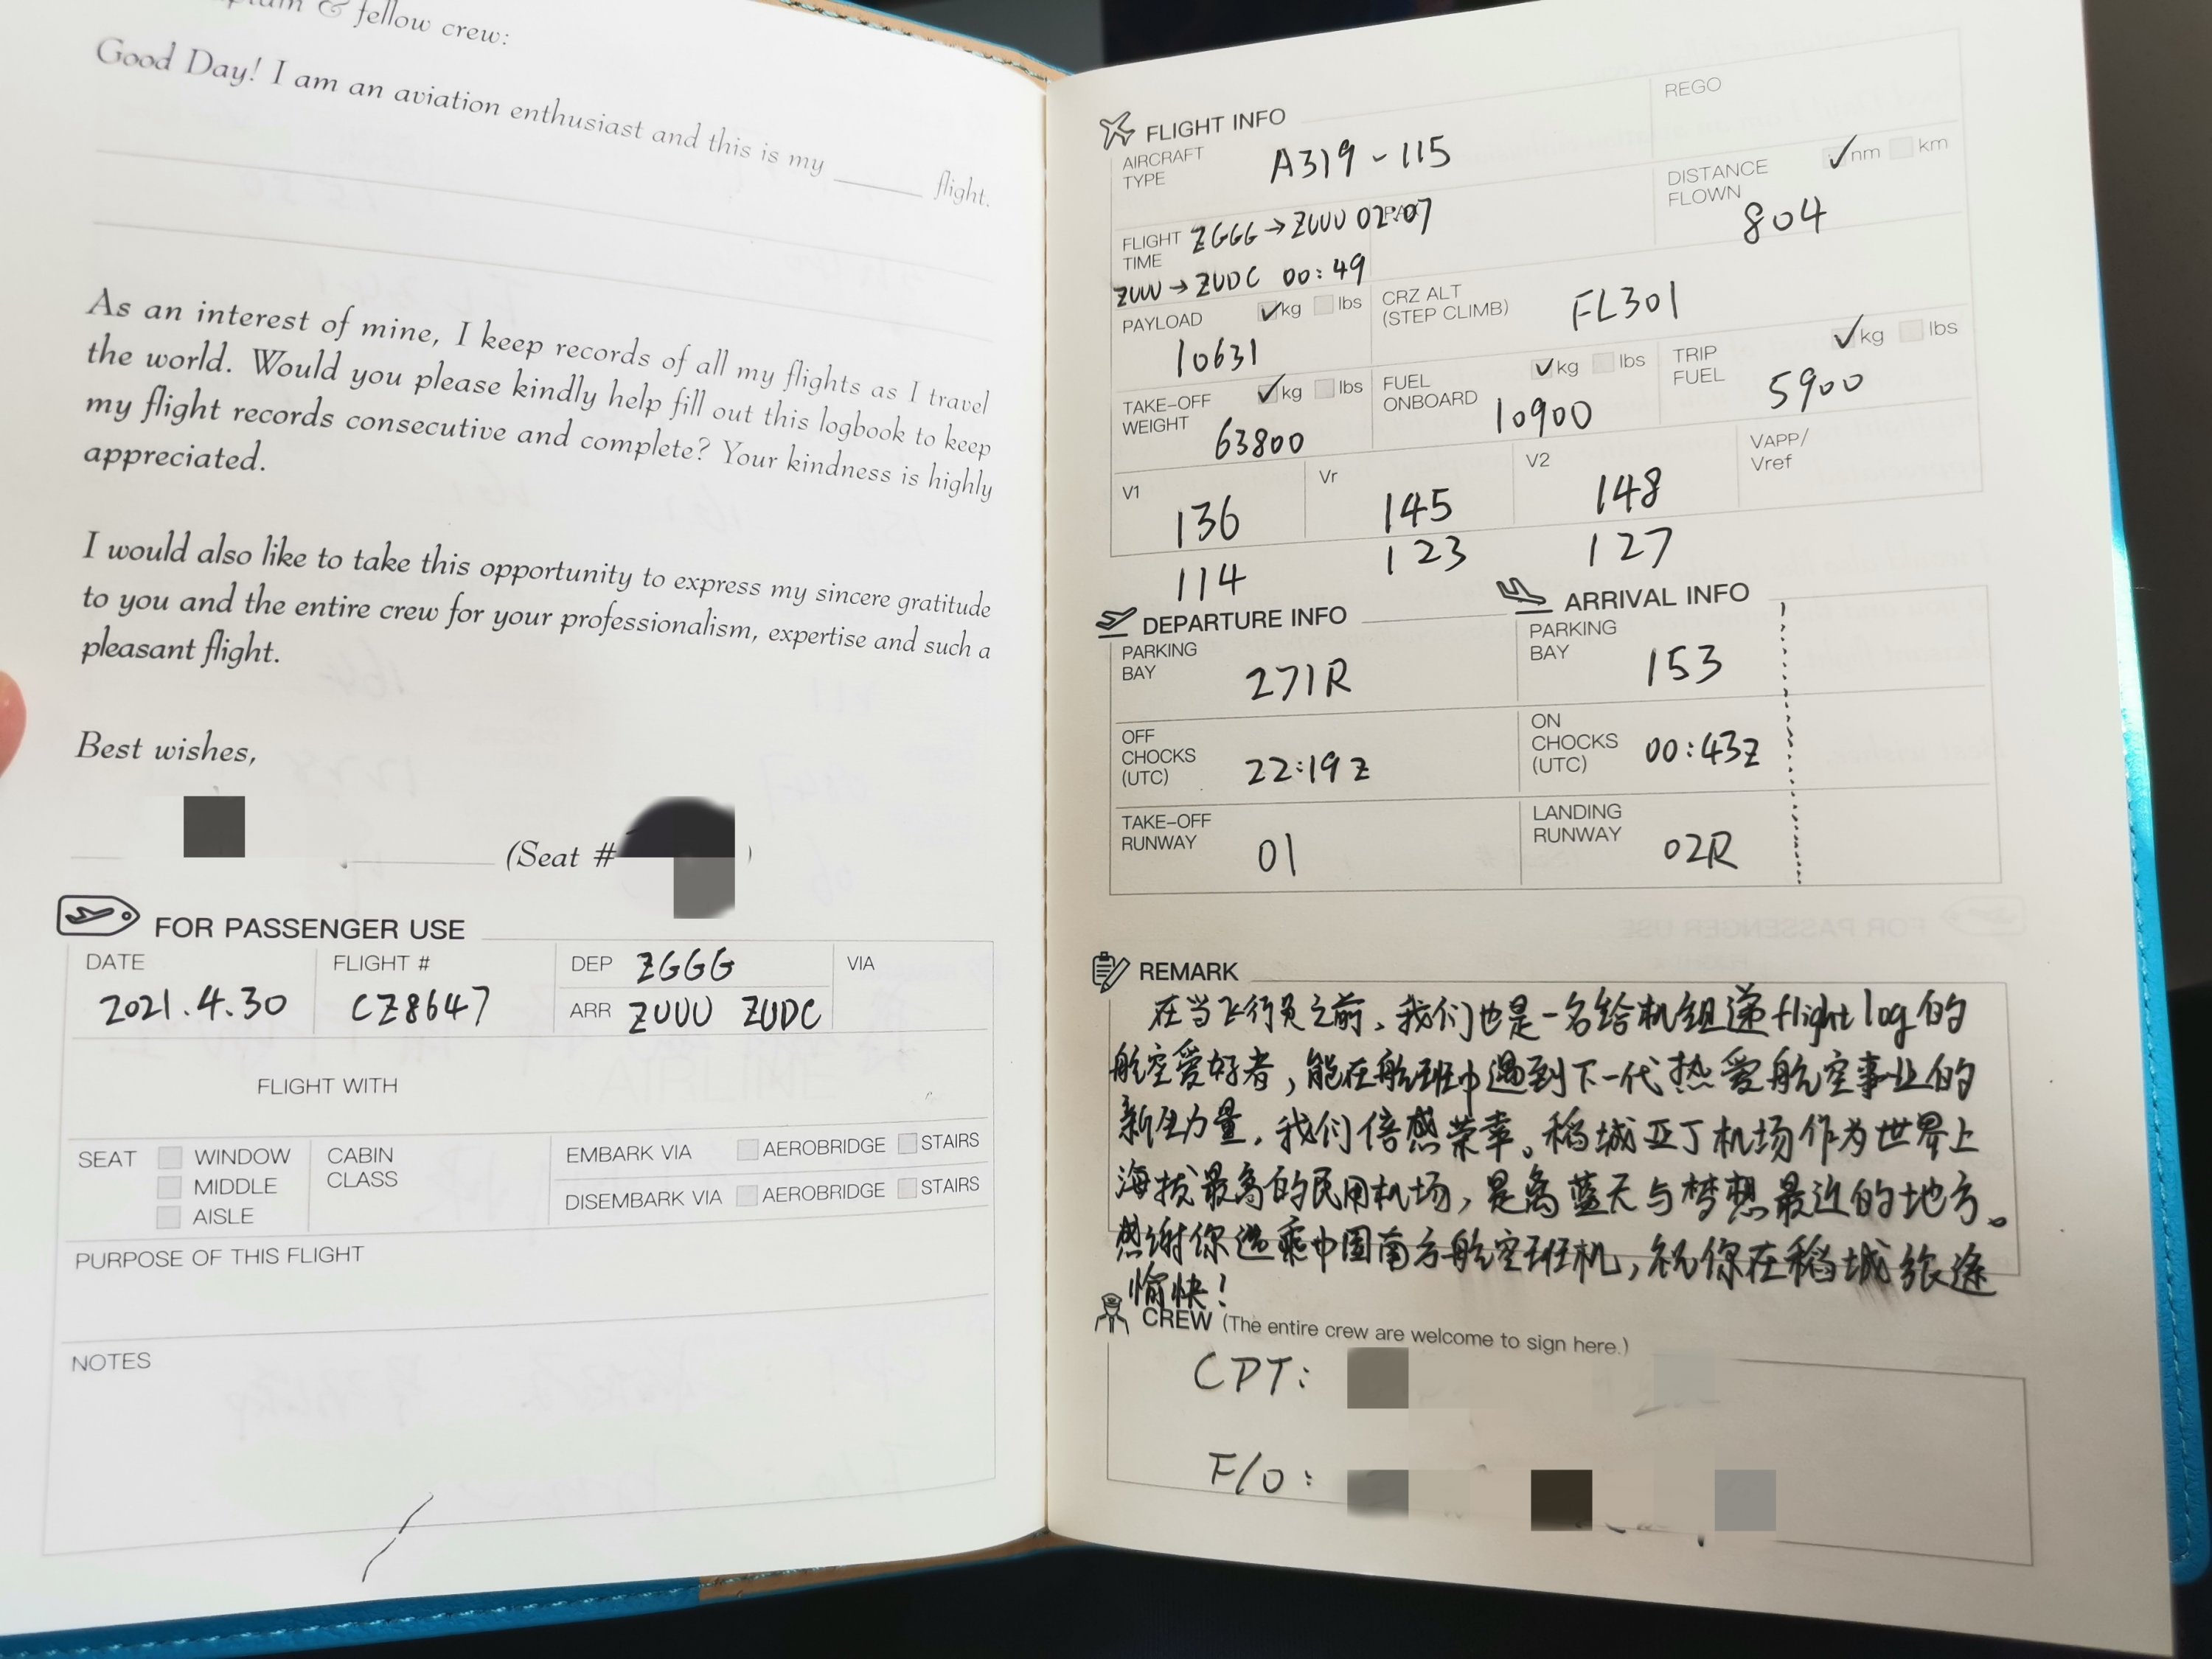 & fellow crew:
Good Day! I am an aviation enthusiast and this is my ______ flight.
As an interest of mine, I keep records of all my flights as I travel
the world. Would you please kindly help fill out this logbook to keep
my flight records consecutive and complete? Your kindness is highly
appreciated.
I would also like to take this opportunity to express my sincere gratitude
to you and the entire crew for your professionalism, expertise and such a
pleasant flight.
Best wishes,
(Seat # )
FOR PASSENGER USE
DATE 2021.4.30
FLIGHT # CZ8647
DEP ZGGG
ARR ZUUU ZUDC
VIA
FLIGHT WITH
SEAT WINDOW
MIDDLE
AISLE
CABIN
CLASS
EMBARK VIA AEROBRIDGE STAIRS
DISEMBARK VIA AEROBRIDGE STAIRS
PURPOSE OF THIS FLIGHT
NOTES
FLIGHT INFO
REGO
AIRCRAFT
TYPE
A319-115
DISTANCE
FLOWN
✓nm km
804
FLIGHT
TIME
ZGGG→ZUUU 02:07
ZUUU→ZUDC 00:49
PAYLOAD ✓kg lbs
10631
CRZ ALT
(STEP CLIMB)
FL301
TAKE-OFF
WEIGHT
✓kg lbs
63800
FUEL
ONBOARD
✓kg lbs
10900
TRIP
FUEL
✓kg lbs
5900
V1
136
114
Vr
145
123
V2
148
127
VAPP/
Vref
DEPARTURE INFO
PARKING
BAY
271R
OFF
CHOCKS
(UTC)
22:19z
TAKE-OFF
RUNWAY
01
ARRIVAL INFO
PARKING
BAY
153
ON
CHOCKS
(UTC)
00:43z
LANDING
RUNWAY
02R
REMARK
在当飞行员之前,我们也是一名给机组递flight log的
航空爱好者,能在航班中遇到下一代热爱航空事业的
新生力量,我们倍感荣幸。稻城亚丁机场作为世界上
海拔最高的民用机场,是离蓝天与梦想最近的地方。
感谢你选乘中国南方航空班机,祝你在稻城旅途
愉快!
CREW (The entire crew are welcome to sign here.)
CPT:
F/O: